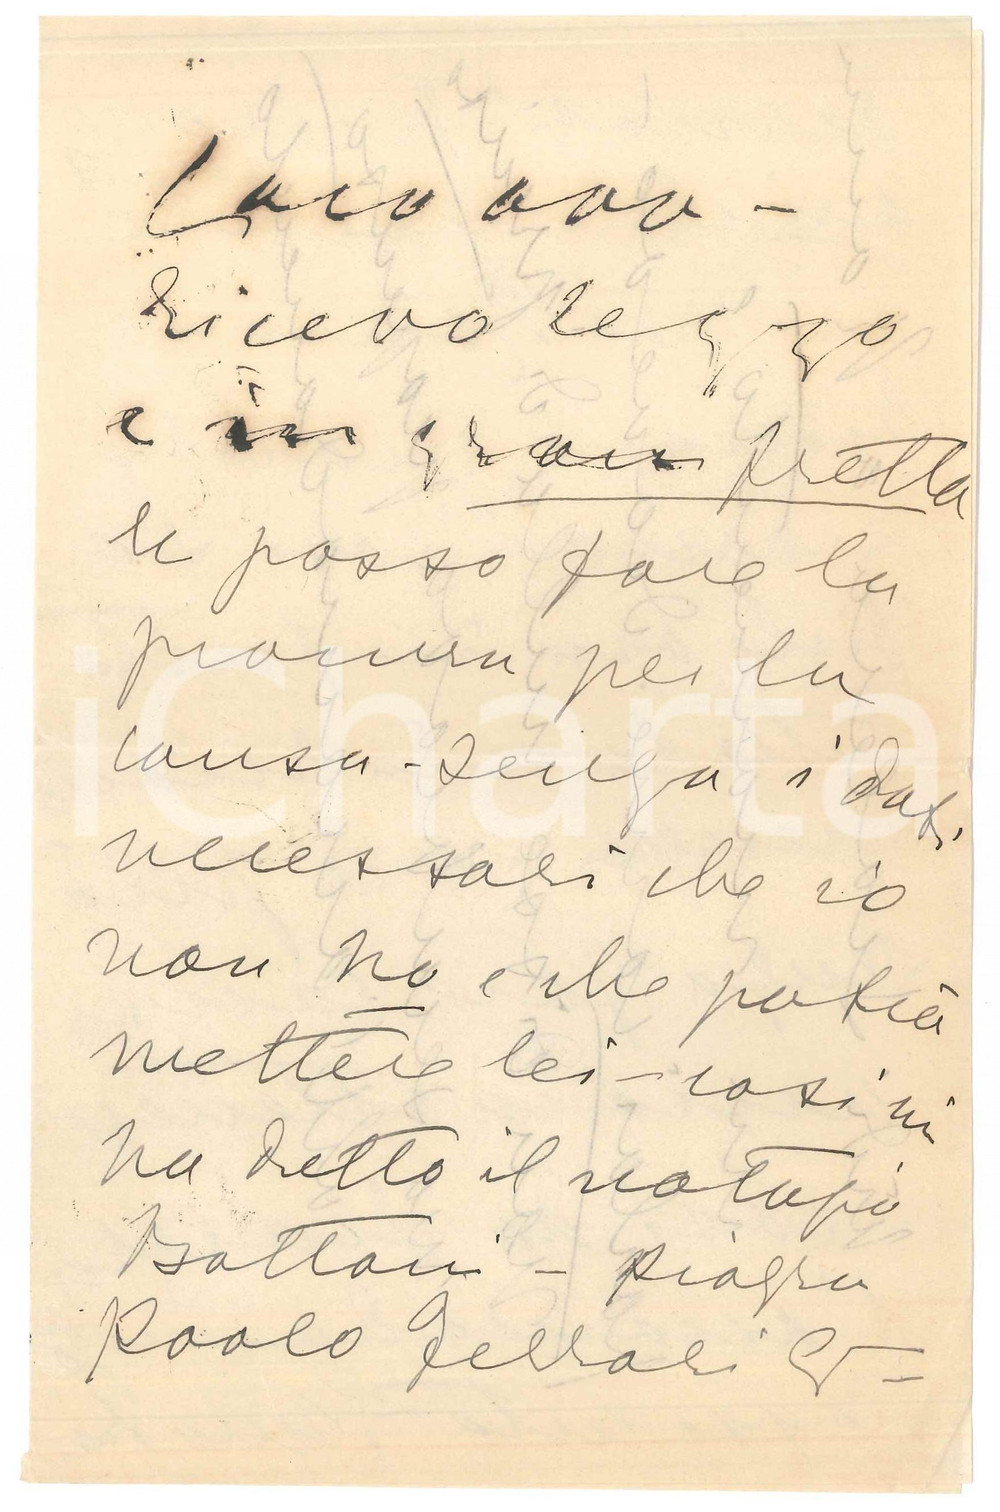 Caro avv –
Ricevo leggo
e in gran fretta
le posso fare la
procura per la
causa – senza i dati
necessari che io
non ho e che potrà
mettere lei – così mi
ha detto il notajo
Bottani – piazza
Paolo Ferrari 
iCharta